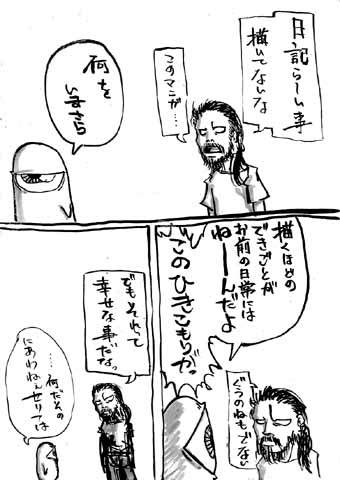 日記らしい事
描いてないな
このマンガ…
何を
いまさら
描くほどの
できごとが
お前の日常には
ねーーんだよ
このひきこもりが。
ぐうのねもでない
でもそれって
幸せな事だな。
……何だその
にあわねぇセリフは